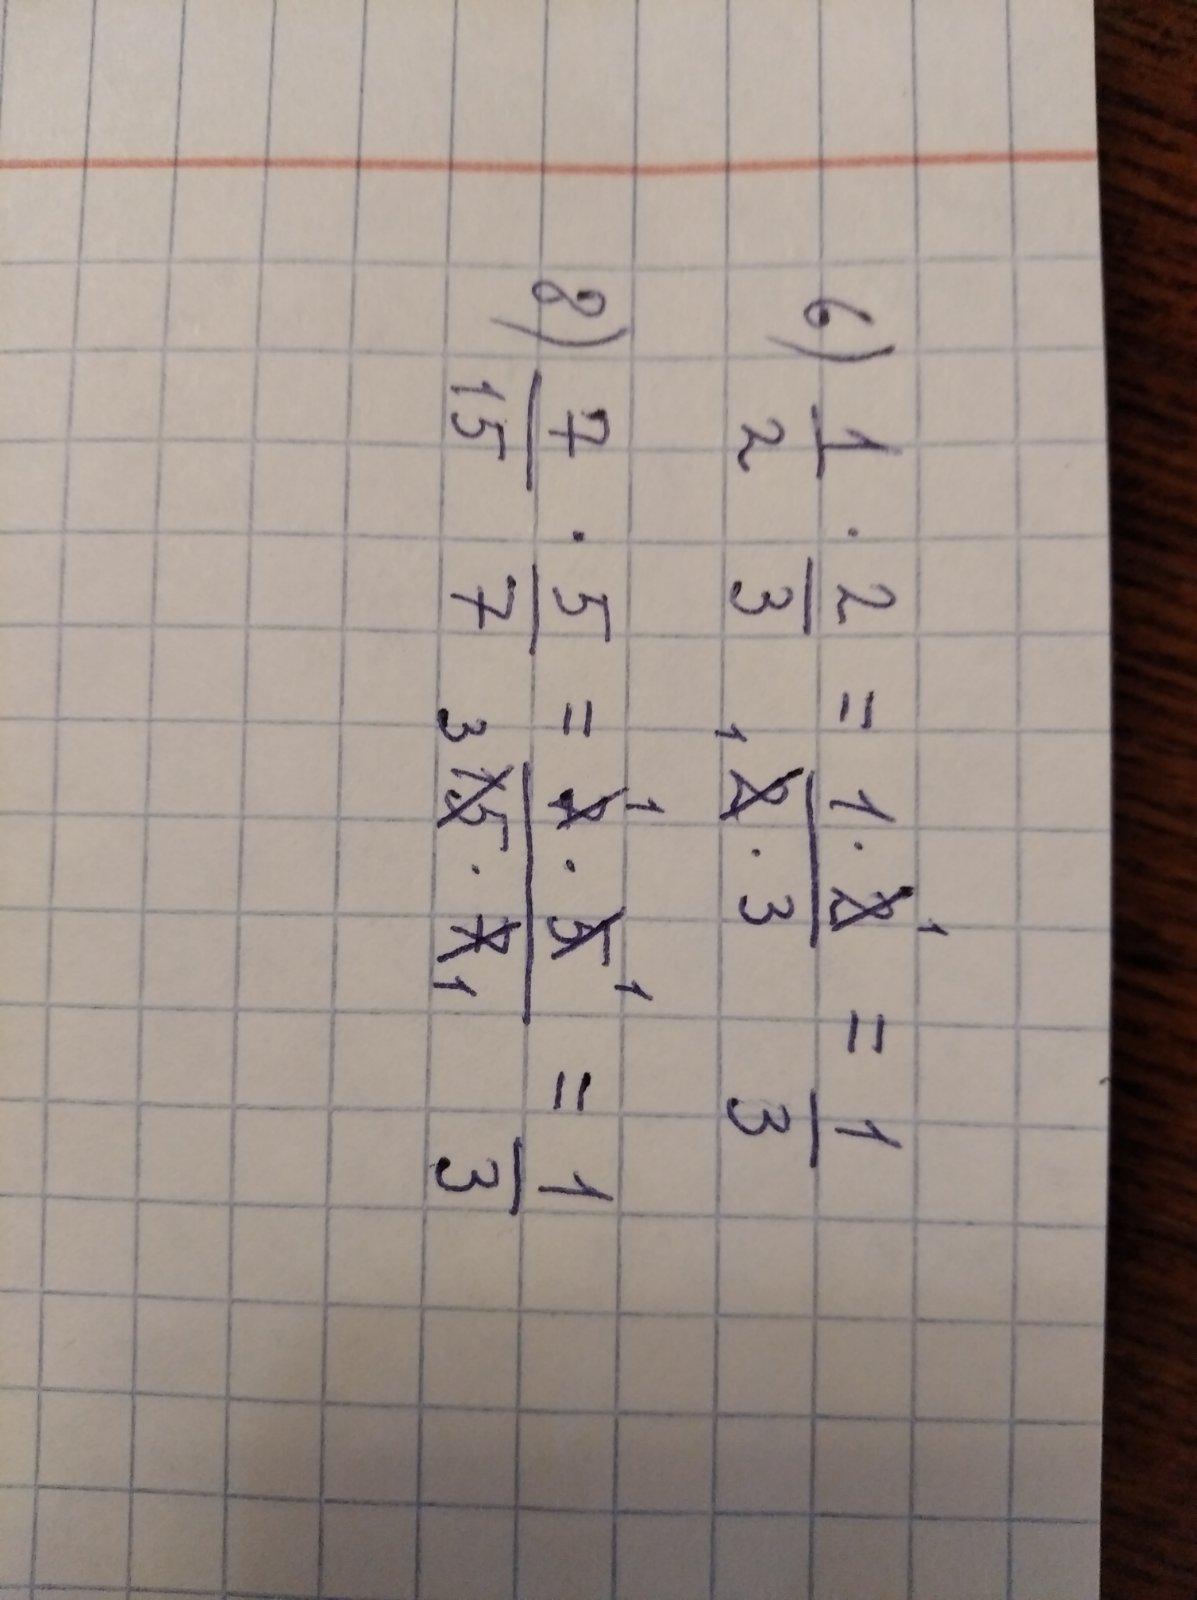 6) 1/2 · 2/3 = 1·2¹/¹2·3 = 1/3
8) 7/15 · 5/7 = 7¹·5¹/³15·7₁ = 1/3